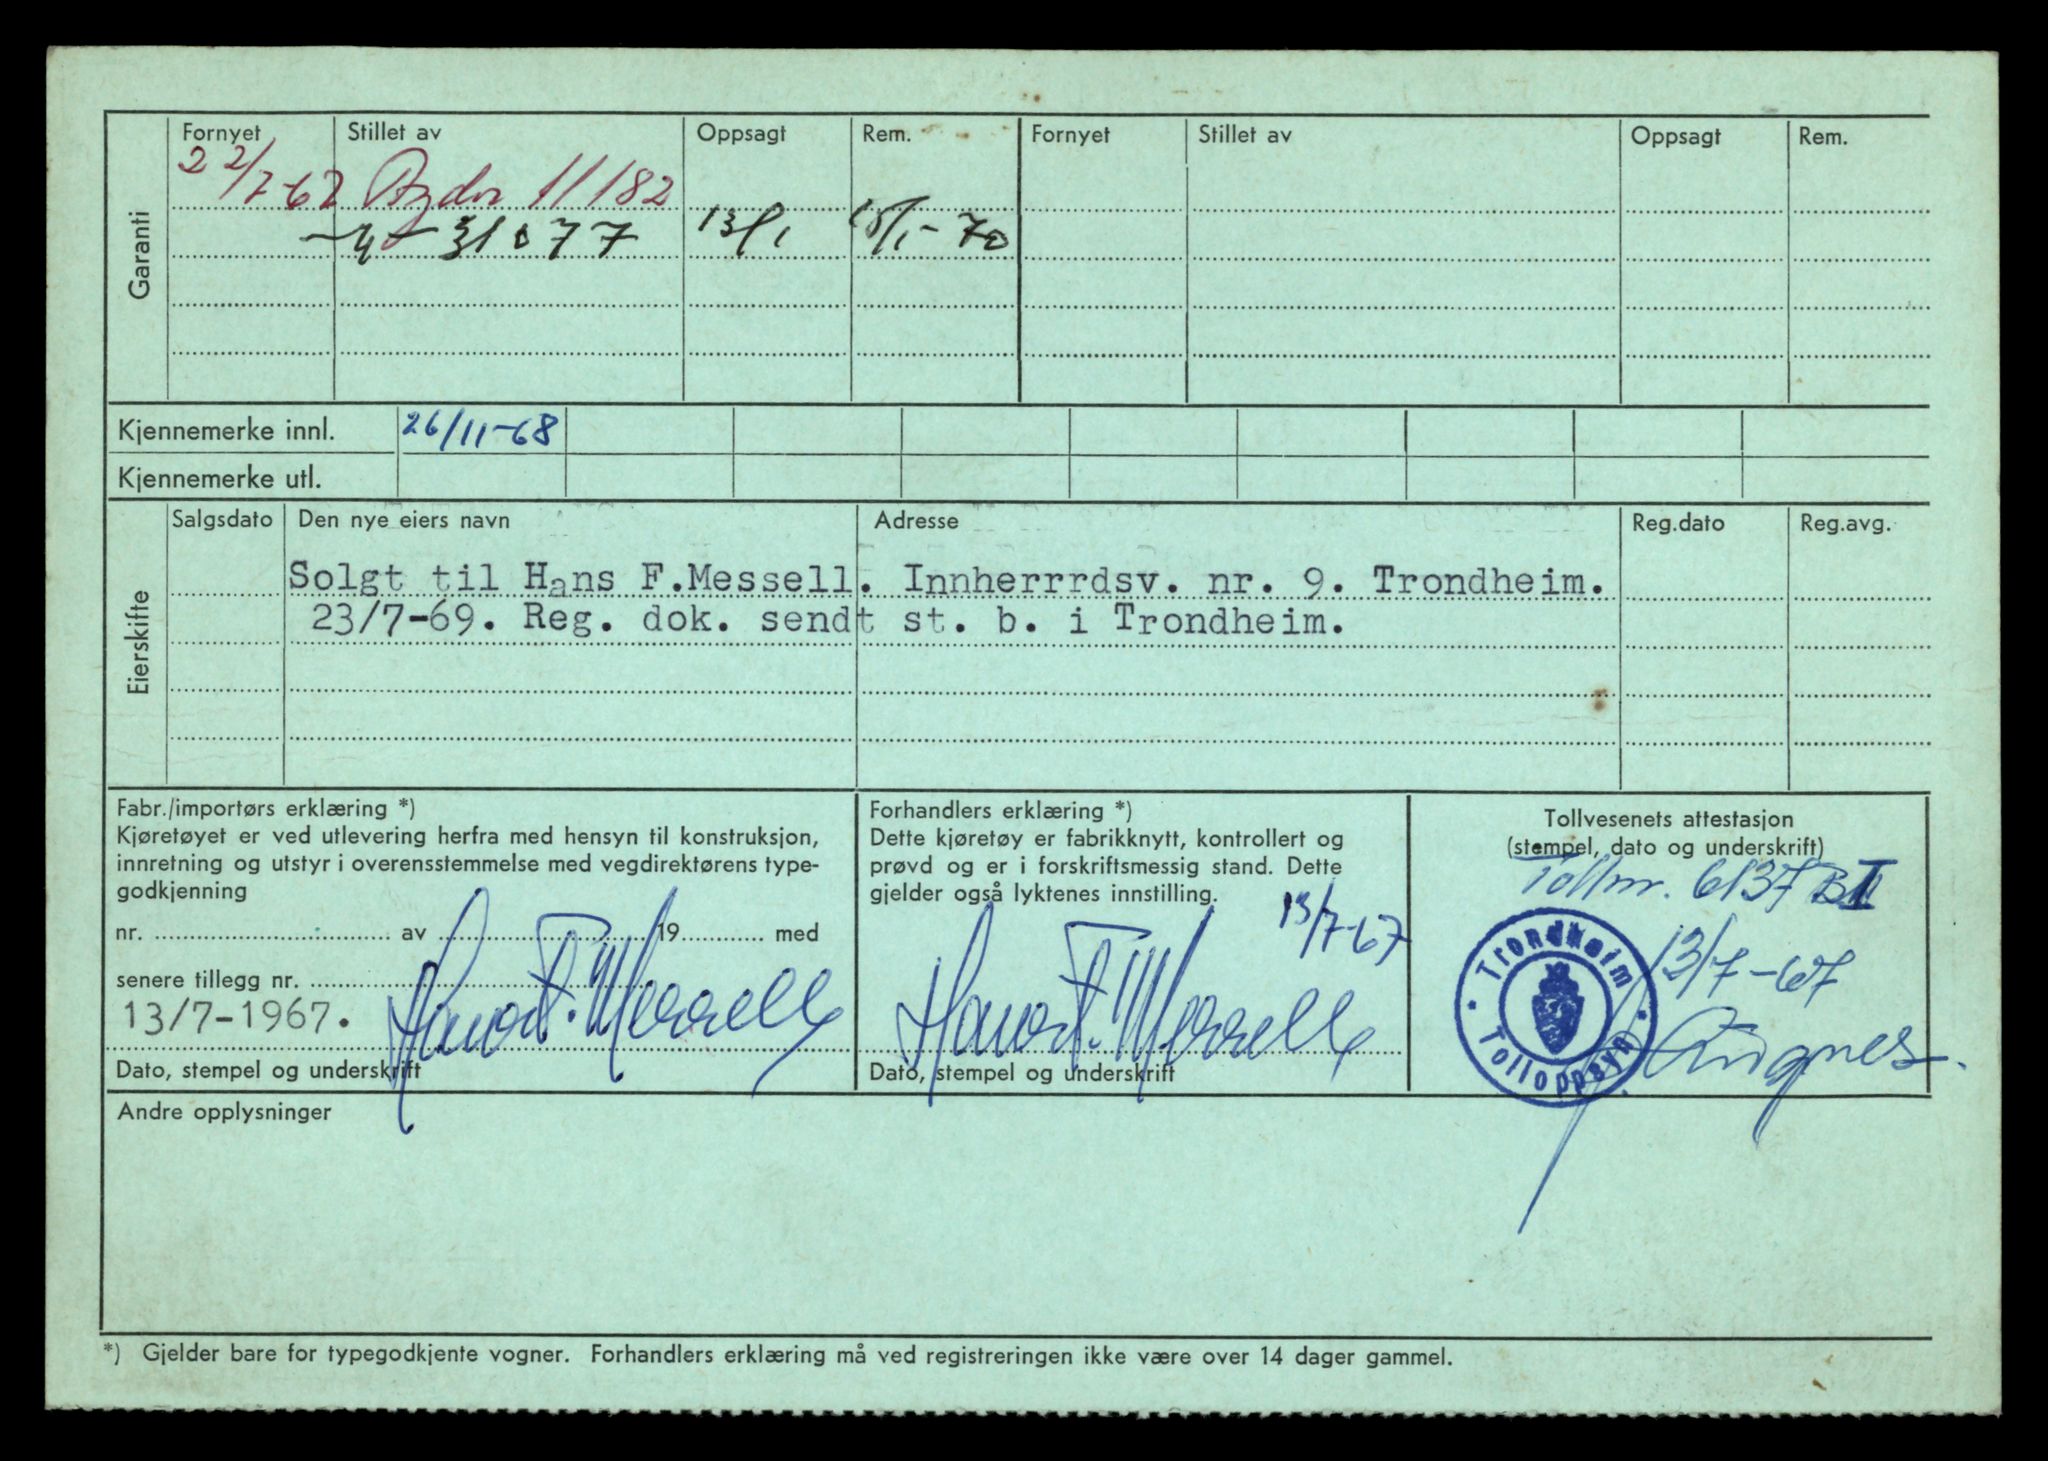 Garanti
Fornyet Stillet av Oppsagt Rem. Fornyet Stillet av Oppsagt Rem.
22/7-67 11182
31077 13/1 15/1-70
Kjennemerke innl. 26/11-68
Kjennemerke utl.
Eierskifte
Salgsdato Den nye eiers navn Adresse Reg.dato Reg.avg.
Solgt til Hans F.Messell. Innherrrdsv. nr. 9. Trondheim.
23/7-69. Reg. dok. sendt st. b. i Trondheim.
Fabr./importørs erklæring *)
Kjøretøyet er ved utlevering herfra med hensyn til konstruksjon,
innretning og utstyr i overensstemmelse med vegdirektørens type-
godkjenning
nr. av 19 med
senere tillegg nr.
13/7-1967. Hans F. Messell
Dato, stempel og underskrift
Forhandlers erklæring *)
Dette kjøretøy er fabrikknytt, kontrollert og
prøvd og er i forskriftsmessig stand. Dette
gjelder også lyktenes innstilling.
13/7-67
Hans F. Messell
Dato, stempel og underskrift
Tollvesenets attestasjon
(stempel, dato og underskrift)
Tollnr. 6137 B II
13/7-67
Trondheim
Tolloppsyn
Andre opplysninger
*) Gjelder bare for typegodkjente vogner. Forhandlers erklæring må ved registreringen ikke være over 14 dager gammel.